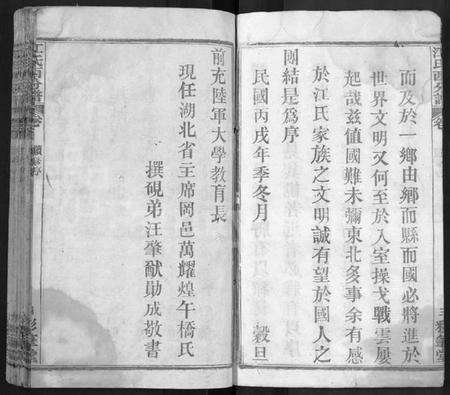 而及於一鄉由鄉而縣而國必將進於
世界文明又何至於入室操戈戰雲屢
起哉茲值國難未彌東北多事余有感
於汪氏家族之文明誠有望於國人之
團結是爲序
民國丙戌年季冬月 穀旦
前充陸軍大學教育長
現任湖北省主席岡邑萬耀煌午橋氏
撰硯弟汪肇猷勛成敬書